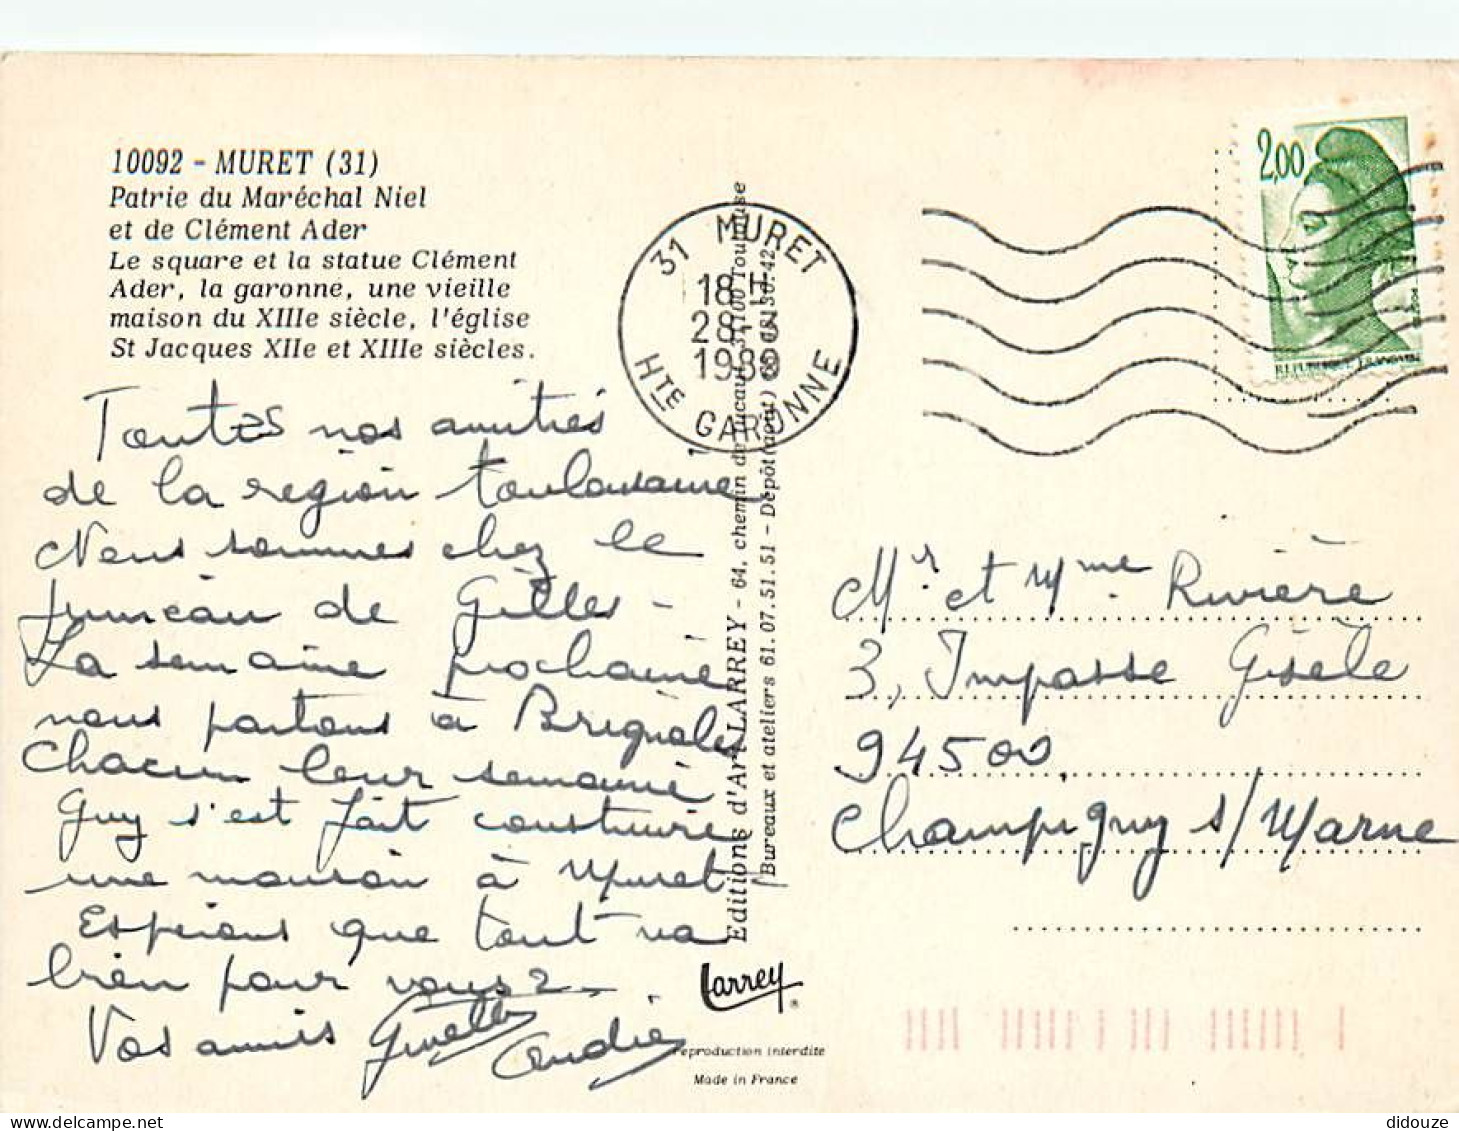 10092 - MURET (31)
Patrie du Maréchal Niel
et de Clément Ader
Le square et la statue Clément
Ader, la garonne, une vieille
maison du XIIIe siècle, l'église
St Jacques XIIe et XIIIe siècles.
Toutes nos amitiés
de la région toulousaine
Nous sommes chez le
jumeau de Gilles -
La semaine prochaine
nous partons à Brignoles
chacun leur semaine
Guy s'est fait construire
une maison à Muret -
Espérons que tout va
bien pour vous 2 -
Vos amis Ginette
Andrée
Editions d'Art LARREY - 64, chemin de 31100 Toulouse
Bureaux et ateliers 61.07.51.51 - Dépôt
larrey
®
reproduction interdite
Made in France
31 MURET
18 H
28
HTE GARONNE
2,00
REPUBLIQUE FRANÇAISE
Mr et Mme Rivière
3, Impasse Gisèle
94500
Champigny s/Marne
didouze
delcampe.net